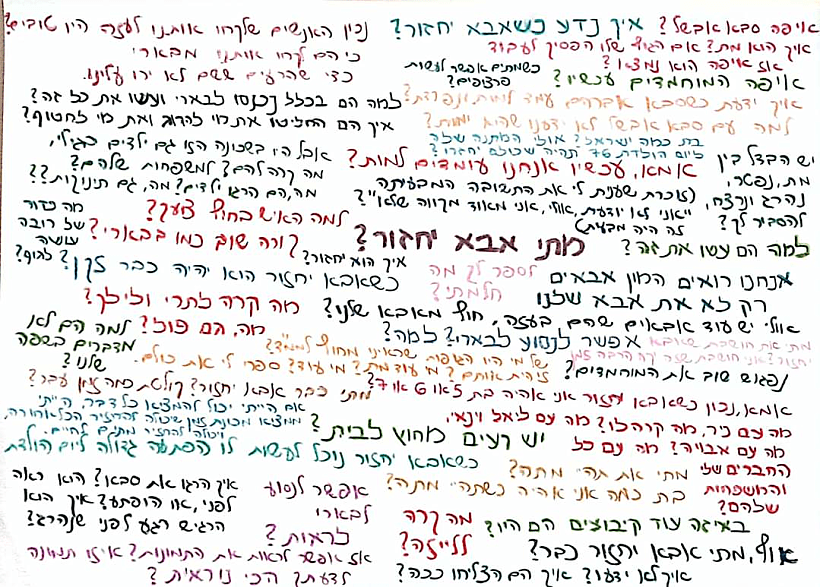 איפה סבא אבשל? איך נדע כשאבא יחזור? נכון האנשים שלקחו אותנו לעזה היו טובים?
איך הוא מת? אם הגוף שלו הפסיק לעבוד כי הם לקחו אותנו מבארי
אז איפה הוא נמצא? כשמתים אפשר לעשות פרצופים? כדי שהרעים שם לא ירו עלינו.
איפה המוחמדים עכשיו?
איך ידעת כשסבא אברהם עמד למות ונפרדת? למה הם בכלל נכנסו לבארי ועשו את כל זה?
למה עם סבא אבשל לא ידענו שהוא ימות? איך הם החליטו את מי להרוג ואת מי לחטוף?
בת כמה ישראל? אולי המתנה שלה
ליום הולדת 76 תהיה שכולם יחזרו?
יש הבדל בין מת, נפטר, נהרג ונרצח, להסביר לך?
אמא, עכשיו אנחנו עומדים למות? אבל היו בשכונה הזו גם ילדים כגילי,
מה קרה להם? למשפחות שלהם?
מה, הם הרגו ילדים? מה, גם תינוקות??
(זוכרת שענית לי את התשובה המבעיתה
"אני לא יודעת, אולי, אני מאוד מקווה שלא"?
לה היה מבעית)
למה האיש בחוץ צועק? מה כדור של רובה עושה לגוף?
למה הם עשו את זה? מתי אבא יחזור? קורה שוב כמו בבארי?
איך הוא יחזור?
אנחנו רואים המון אבאים לספר לך מה חלמתי? כשאבא יחזור הוא יהיה כבר זקן?
רק לא את אבא שלנו
אולי יש עוד אבאים שהם בעזה, חוץ מאבא שלנו? מה קרה לתרי ולילך?
מה, הם פול? למה הם לא מדברים בשפה שלנו?
מתי את חושבת שאבא יחזור? אני חושבת שעד קר הרבה זמן אפשר לנסוע לבארי? למה?
של מי היו הגופות שראינו מחוץ לממ"ד?
זיהית אותם? מי עוד מת? מי עוד? ספרי לי את כולם.
נפגוש שוב את המוחמדים?
מתי כבר אבא יחזור? קולטת כמה זמן עבר?
אמא, נכון כשאבא יחזור אני אהיה בת 5 או 6 או 7?
אם היית יכול להמציא כל דבר, הייתי
ממציא מכונת זמן שיכולה להחזיר הכל אחורה,
ויכולה להחזיר מתים לחיים.
מה עם ניר, מה קרה לו? מה עם ליאל וינאי,
מה עם אביה? מה עם כל החברים שלי והמשפחות שלהם?
יש רעים מחוץ לבית?
כשאבא יחזור נוכל לעשות לו הפתעה גדולה ליום הולדת
מתי את תהיי מתה?
בת כמה אני אהיה כשתהיי מתה?
אפשר לנסוע לבארי לראות?
איך הרגו את סבא? הוא ראה לפני, או הופתע? איך הוא הרגיש רגע לפני שנהרג?
באיזה עוד קיבוצים הם היו?
מה קרה ללייזה?
אוף, מתי אבא יחזור כבר?
אז אפשר לראות את התמונות? איזו תמונה לדעתך הכי נוראית?
איך לא ידעו? איך הם הצליחו ככה?